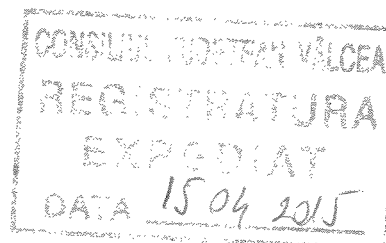 CONSILIUL JUDEŢEAN VÂLCEA
REGISTRATURA
EXPEDIAT
DATA 15 04 2015